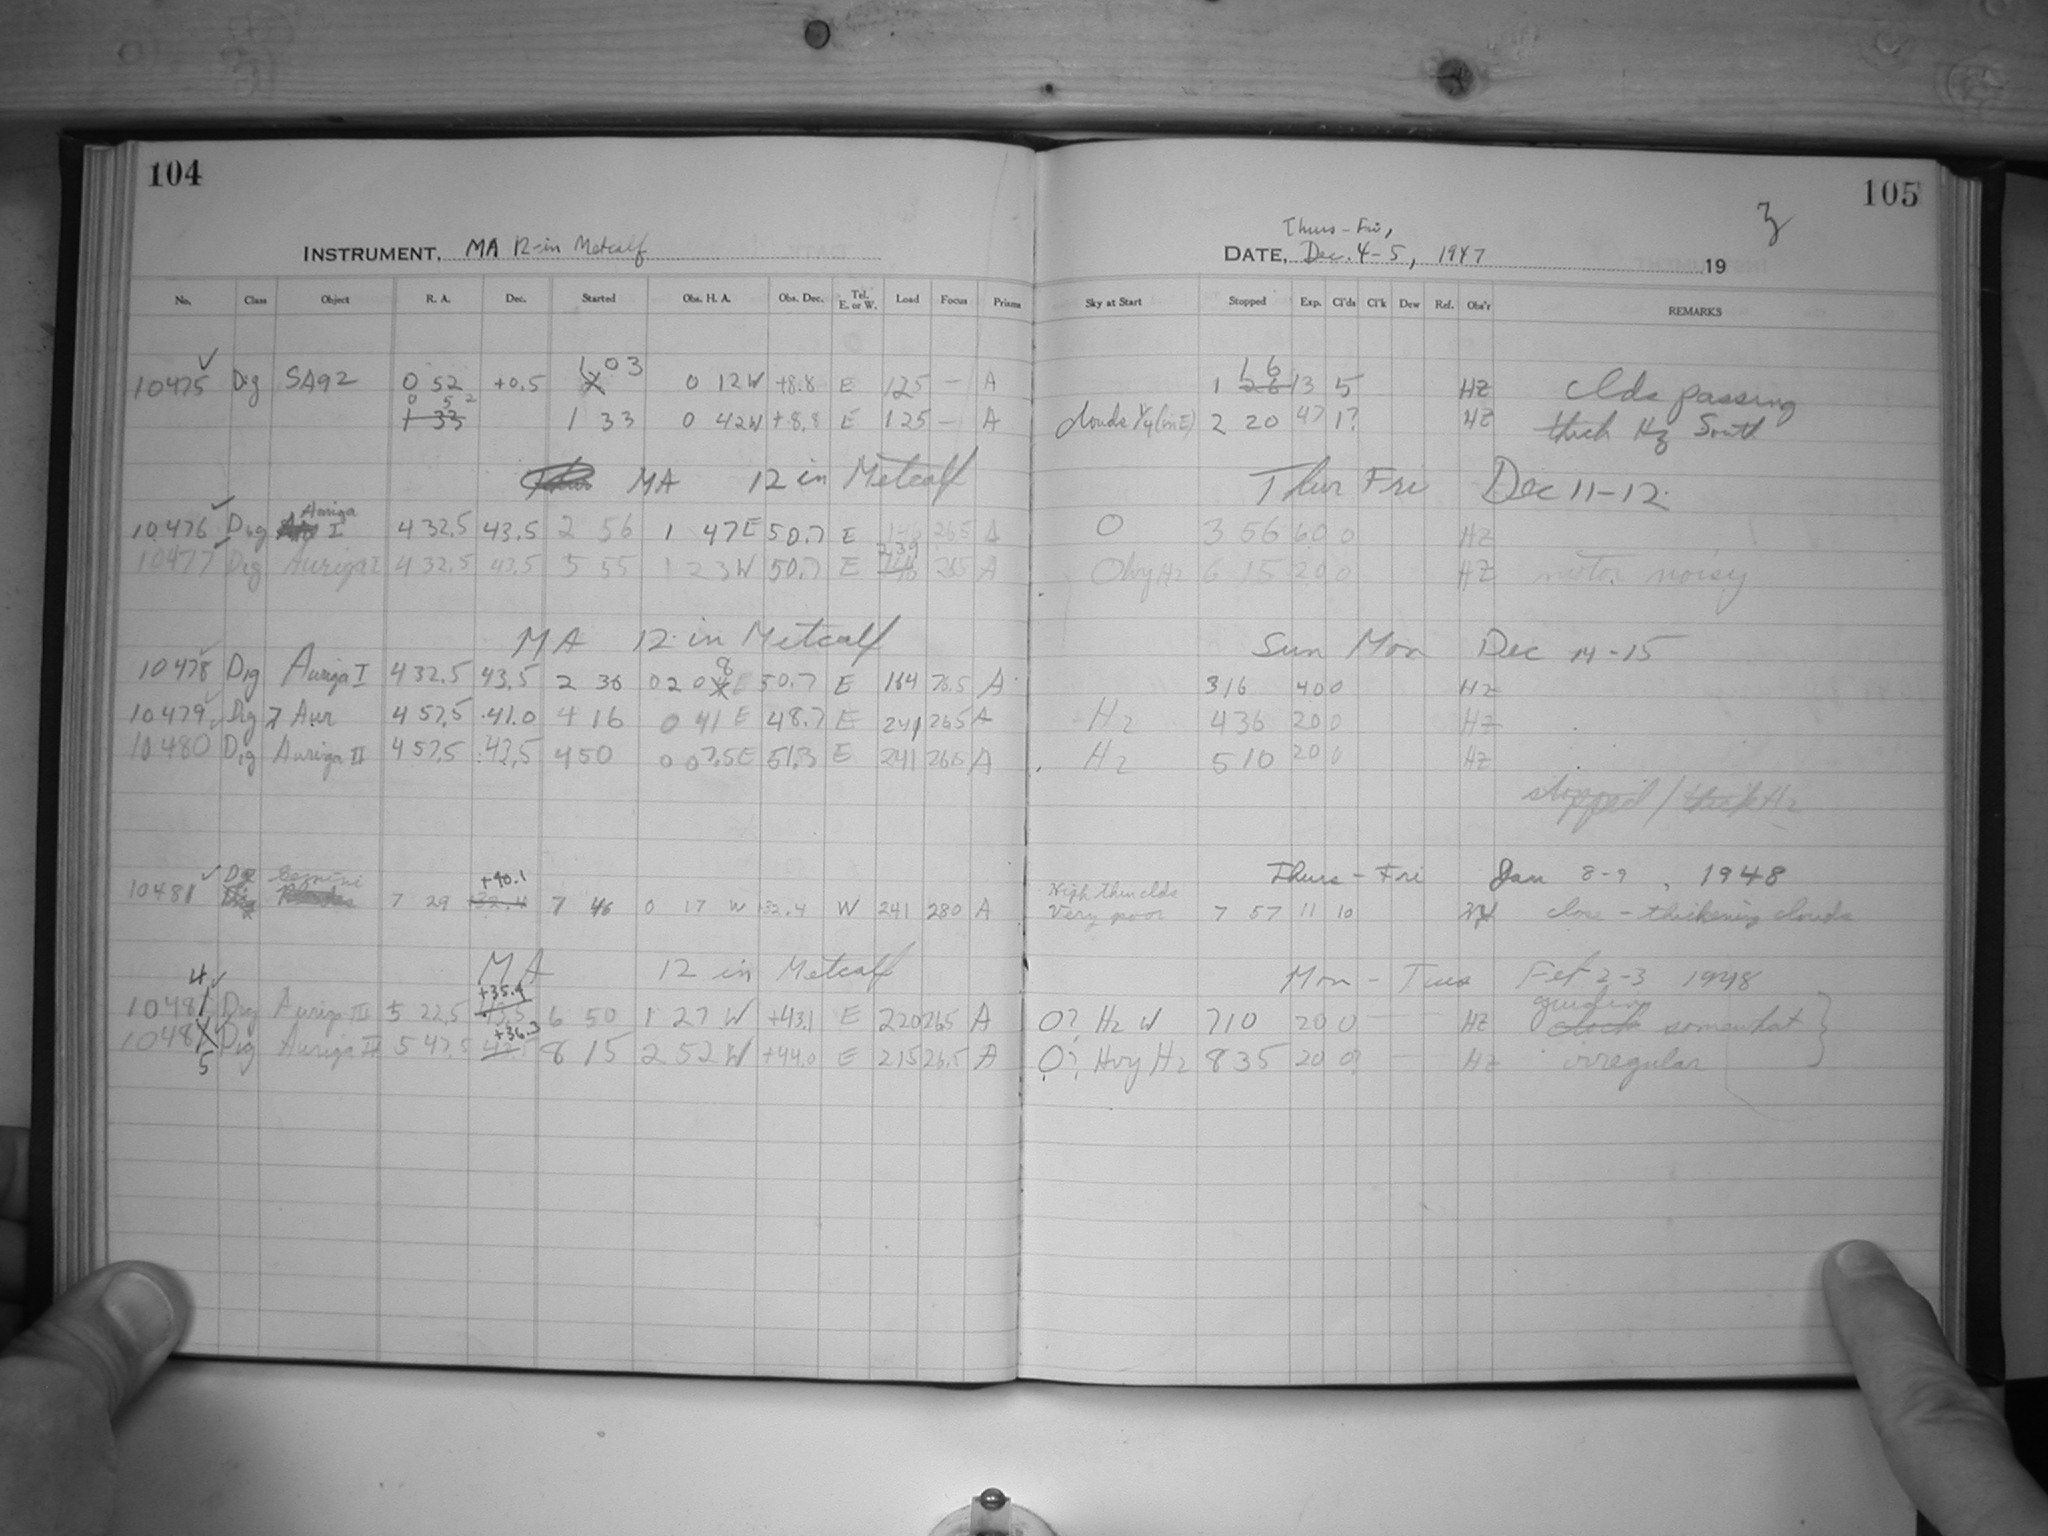 104
105
3
INSTRUMENT, MA 12-in Metcalf
Thurs - Fri,
DATE, Dec. 4-5, 1947 19
No. Class Object R. A. Dec. Started Obs. H. A. Obs. Dec. Tel. E. or W. Load Focus Prisms Sky at Start Stopped Exp. Cl'ds Cl'k Dew Ref. Obs'r REMARKS
10475 Dig SA92 0 52 +0.5 1 03 0 12W +8.8 E 125 — A 1 16 13 5 HZ Clds passing
0 52 1 33 0 42W +8.8 E 125 — A clouds 1/4 (in E) 2 20 47 1? HZ thick Hz South
MA 12 in Metcalf Thur Fri Dec 11-12
10476 Dig Auriga I 4 32.5 43.5 2 56 1 47E 50.7 E 146 265 A 0 3 56 60 0 HZ
10477 Dig Auriga I 4 32.5 43.5 5 55 1 23W 50.7 E 239 265 A 0 hvy Hz 6 15 20 0 HZ motor noisy
MA 12 in Metcalf Sun Mon Dec 14-15
10478 Dig Auriga I 4 32.5 43.5 2 36 0208E 50.7 E 164 26.5 A 3 16 40 0 HZ
10479 Dig 7 Aur 4 57.5 41.0 4 16 0 41 E 48.7 E 241 265 A Hz 4 36 20 0 HZ
10480 Dig Auriga II 4 57.5 43.5 4 50 0 07.5E 51.3 E 241 26.5 A Hz 5 10 20 0 HZ
stopped / thick Hz
Thurs - Fri Jan 8-9, 1948
10481 Dig Gemini 7 29 +40.1 7 46 0 17 W 32.4 W 241 280 A High thin clds Very poor 7 57 11 10 close - thickening clouds
MA 12 in Metcalf Mon - Tues Feb 2-3 1948
10484 Dig Auriga III 5 22.5 +35.9 6 50 1 27 W +43.1 E 220 265 A 0? Hz W 7 10 20 0 — — HZ guiding somewhat
10485 Dig Auriga 5 47.5 +36.3 8 15 2 52 W +44.0 E 215 26.5 A 0? Hvy Hz 8 35 20 0? — HZ irregular